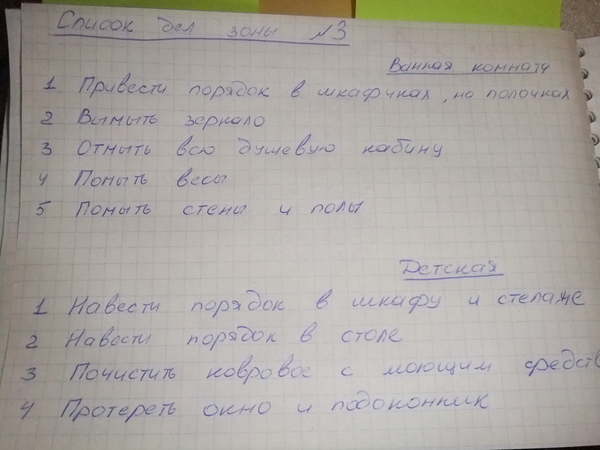 Список дел зоны №3
Ванная комната
1 Привести порядок в шкафчках, на полочках
2 Вымыть зеркало
3 Отмыть всю душевую кабину
4 Помыть весы
5 Помыть стены и полы
Детская
1 Навести порядок в шкафу и стелаже
2 Навести порядок в столе
3 Почистить ковровое с моющим средств
4 Протереть окно и подоконник